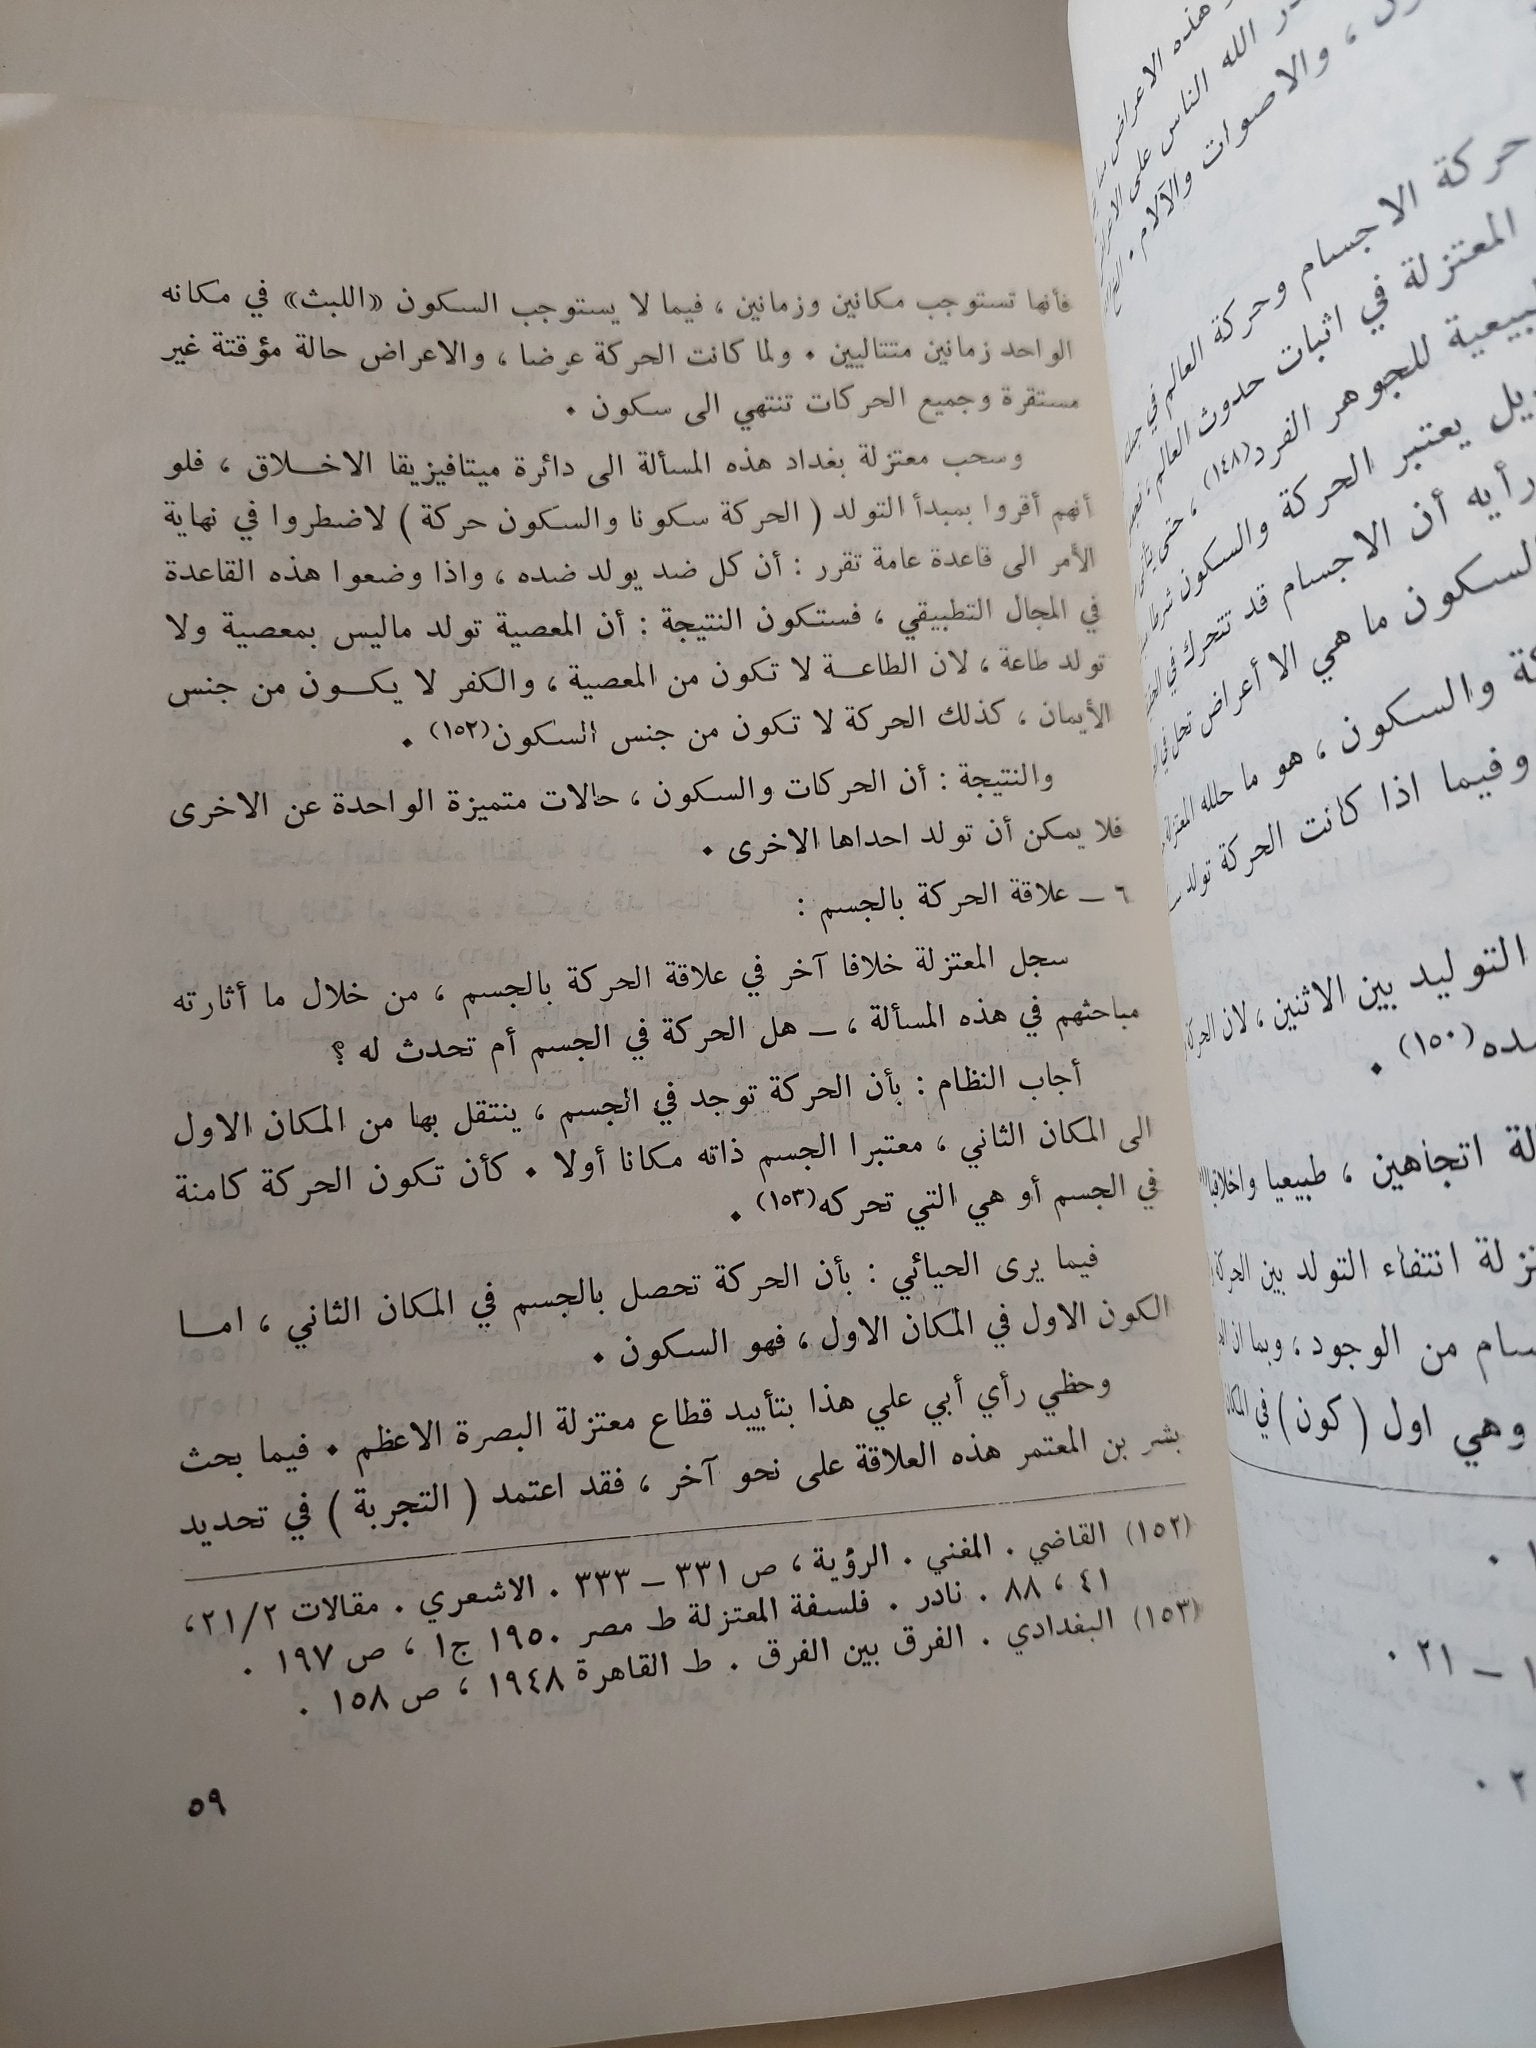 فأنها تستوجب مكانين وزمانين ، فيما لا يستوجب السكون «اللبث» في مكانه
الواحد زمانين متتاليين ٠ ولما كانت الحركة عرضا ، والاعراض حالة مؤقتة غير
مستقرة وجميع الحركات تنتهي الى سكون ٠
وسحب معتزلة بغداد هذه المسألة الى دائرة ميتافيزيقا الاخلاق ، فلو
أنهم أقروا بمبدأ التولد ( الحركة سكونا والسكون حركة ) لاضطروا في نهاية
الأمر الى قاعدة عامة تقرر : أن كل ضد يولد ضده ، واذا وضعوا هذه القاعدة
في المجال التطبيقي ، فستكون النتيجة : أن المعصية تولد ماليس بمعصية ولا
تولد طاعة ، لان الطاعة لا تكون من المعصية ، والكفر لا يكون من جنس
الأيمان ، كذلك الحركة لا تكون من جنس السكون(١٥٢) ٠
والنتيجة : أن الحركات والسكون ، حالات متميزة الواحدة عن الاخرى
فلا يمكن أن تولد احداها الاخرى ٠
٦ ـ علاقة الحركة بالجسم :
سجل المعتزلة خلافا آخر في علاقة الحركة بالجسم ، من خلال ما أثارته
مباحثهم في هذه المسألة ، ـ هل الحركة في الجسم أم تحدث له ؟
أجاب النظام : بأن الحركة توجد في الجسم ، ينتقل بها من المكان الاول
الى المكان الثاني ، معتبرا الجسم ذاته مكانا أولا ٠ كأن تكون الحركة كامنة
في الجسم أو هي التي تحركه(١٥٣) ٠
فيما يرى الحيائي : بأن الحركة تحصل بالجسم في المكان الثاني ، اما
الكون الاول في المكان الاول ، فهو السكون ٠
وحظي رأي أبي علي هذا بتأييد قطاع معتزلة البصرة الاعظم ٠ فيما بحث
بشر بن المعتمر هذه العلاقة على نحو آخر ، فقد اعتمد ( التجربة ) في تحديد
(١٥٢) القاضي . المغني . الرؤية ، ص ٣٣١ ـ ٣٣٣ . الاشعري . مقالات ٢١/٢ ،
٤١ ، ٨٨ . نادر . فلسفة المعتزلة ط مصر ١٩٥٠ ج١ ، ص ١٩٧ .
(١٥٣) البغدادي . الفرق بين الفرق . ط القاهرة ١٩٤٨ ، ص ١٥٨ .
٥٩
هذه الاعراض
الله الناس على
، والاصوات والآلام .
حركة الاجسام وحركة العالم في
المعتزلة في اثبات حدوث العالم ،
للجوهر الفرد(١٤٨) ، حتى
يعتبر الحركة والسكون شرطا
رأيه أن الاجسام قد تتحرك في
السكون ما هي الا أعراض تحل في
والسكون ، هو ما حلله المعتزلة
وفيما اذا كانت الحركة تولد
التوليد بين الاثنين ، لان الحركة
(١٥٠) ٠
اتجاهين ، طبيعيا واخلاقيا
انتفاء التولد بين الحركة
من الوجود ، وبما ان
وهي اول ( كون ) في المكان
ـ ٢١ .